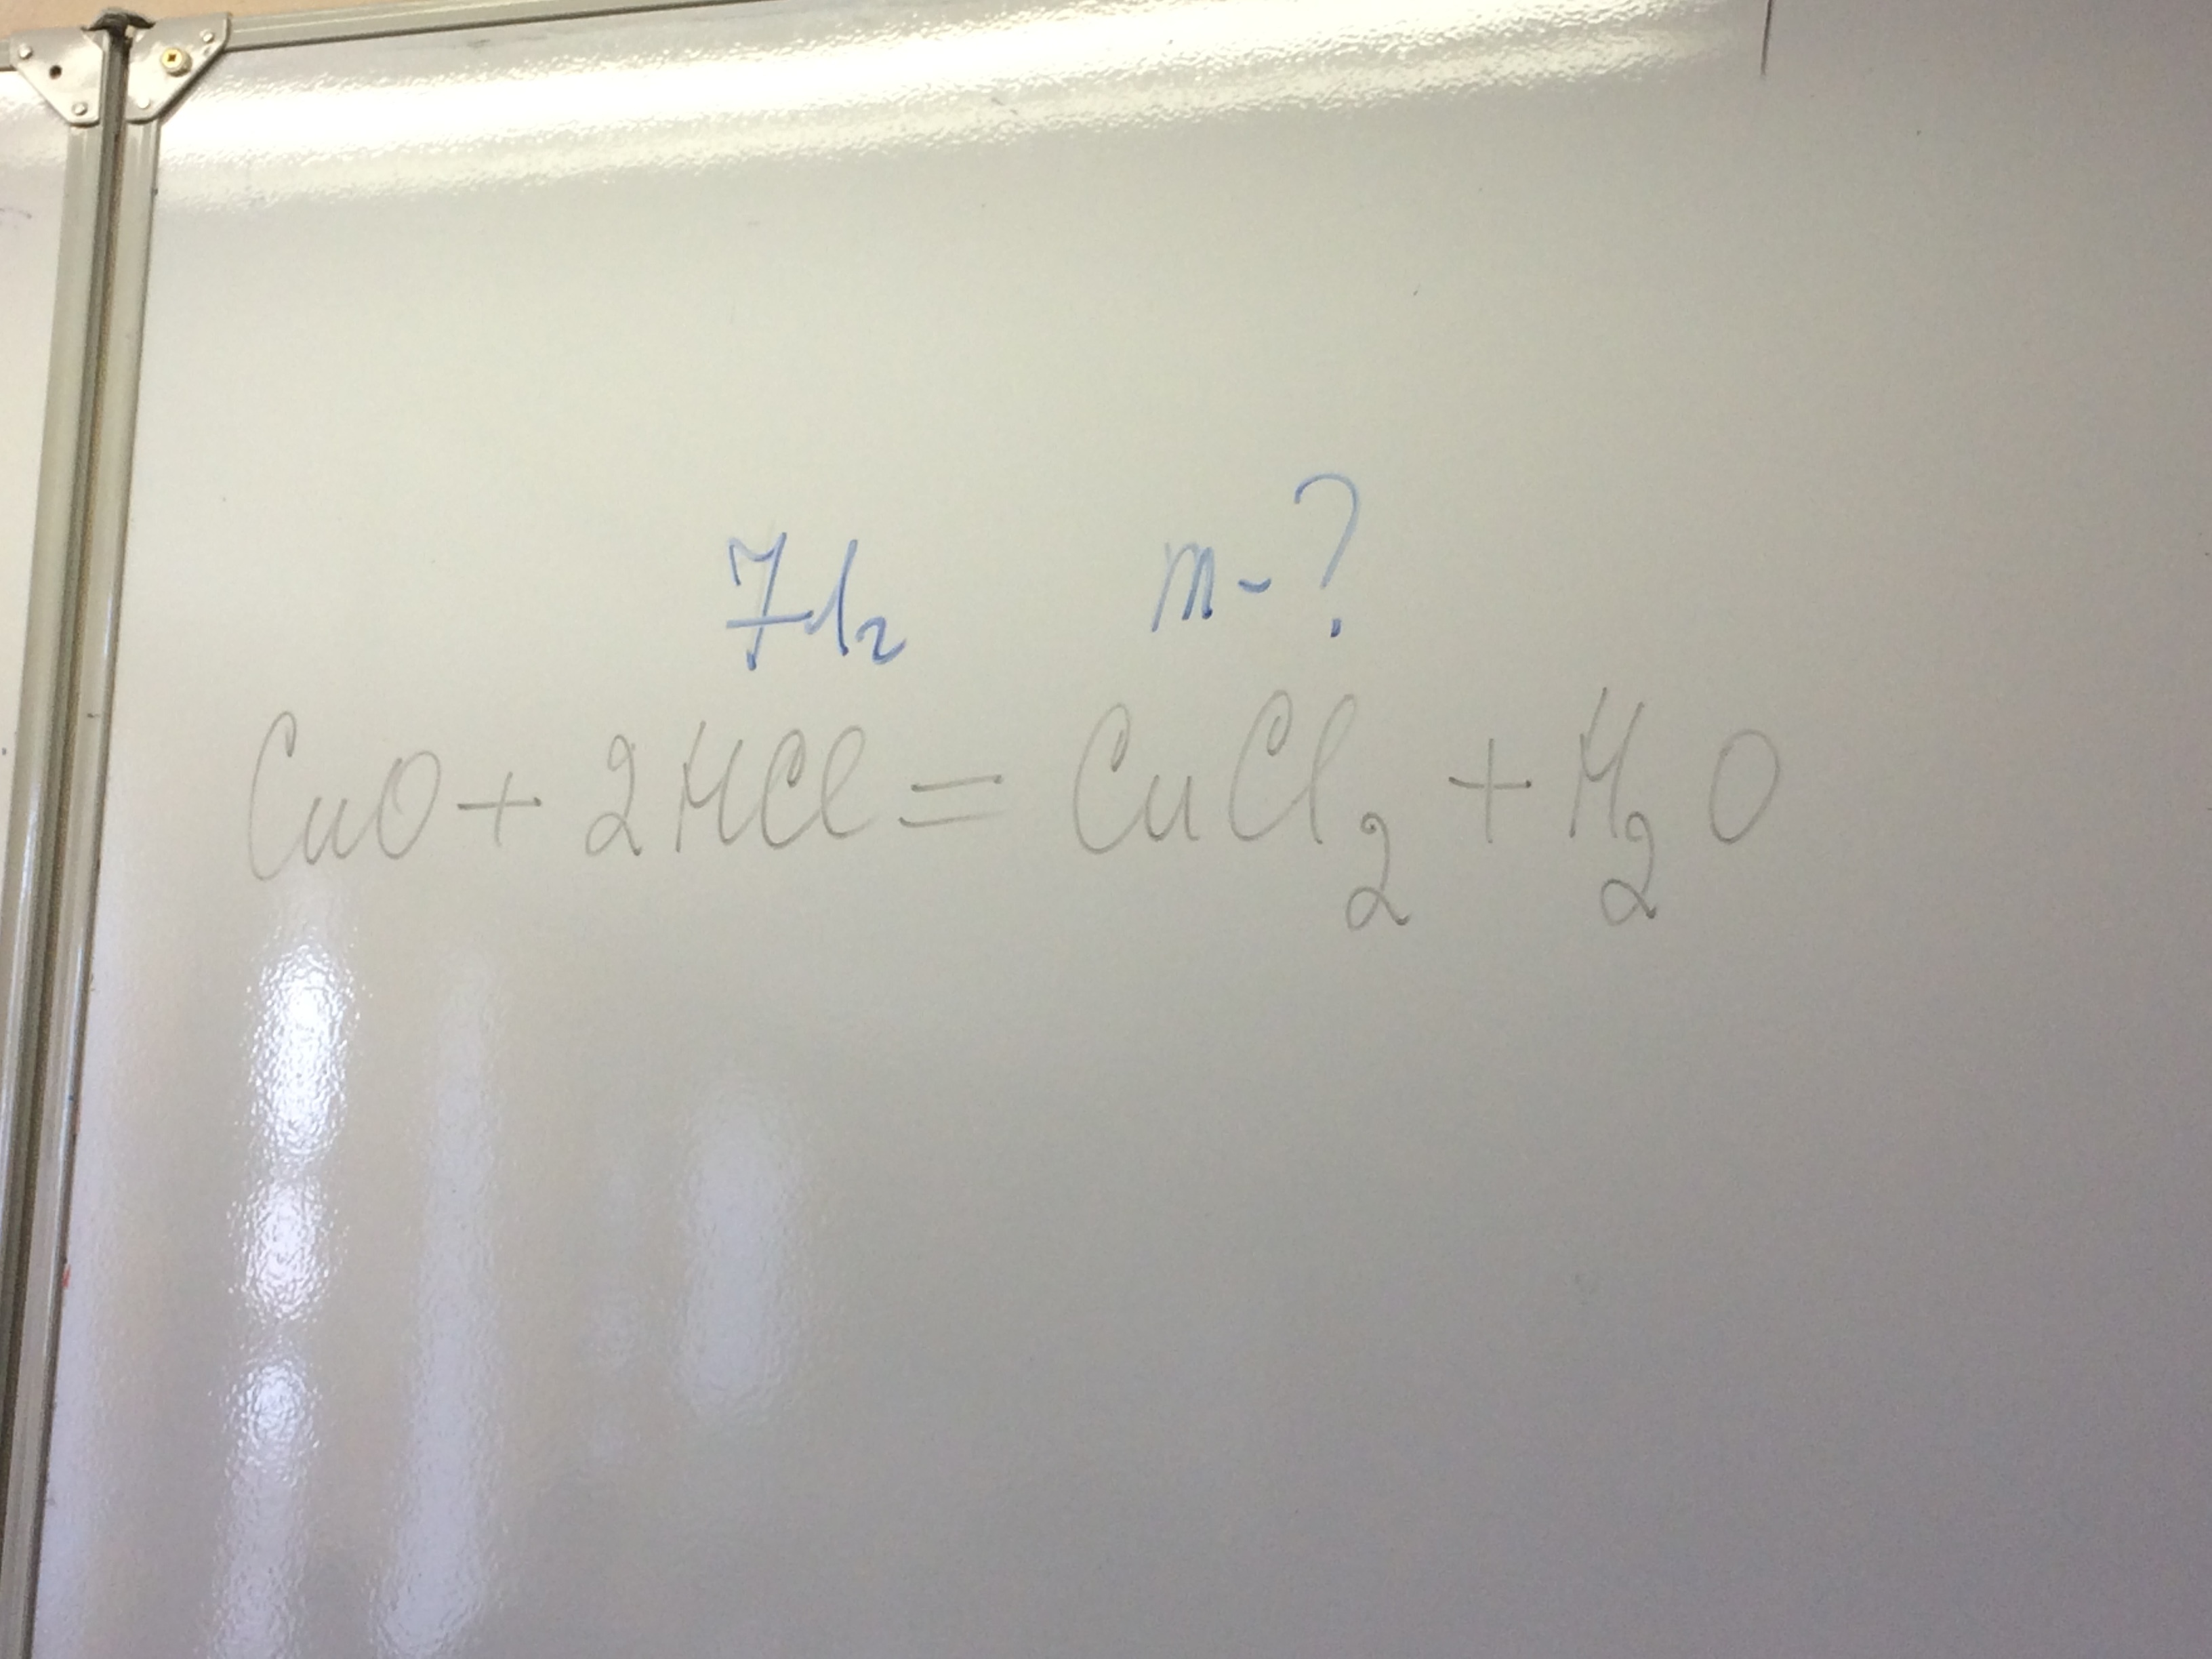 71г m-?
CuO + 2HCl = CuCl₂ + H₂O